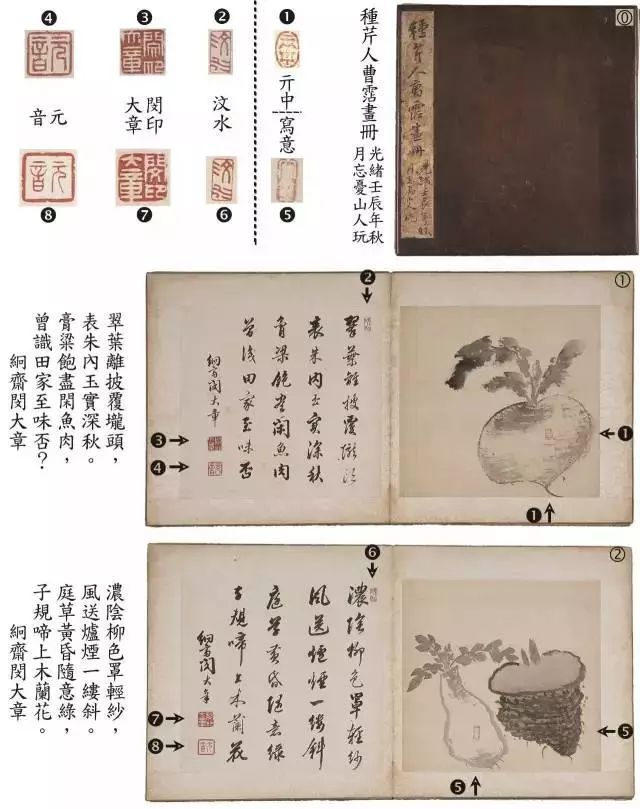 種芹人曹霑畫冊
光緒壬辰年秋
月忘憂山人玩
⓪
種芹人曹霑畫冊
❶
亓中
寫意
❺
❷
汶水
❻
❸
閔印
大章
❼
❹
元
音
❽
①
翠葉離披覆壠頭,
表朱內玉實深秋。
膏粱飽盡閑魚肉,
曾識田家至味否?
絅齋閔大章
❷
翠葉離披覆壠頭
表朱內玉實深秋
膏粱飽盡閑魚肉
曾識田家至味否
絅齋閔大章
❸
❹
❶
❶
②
濃陰柳色罩輕紗,
風送爐煙一縷斜。
庭草黃昏隨意綠,
子規啼上木蘭花。
絅齋閔大章
❻
濃陰柳色罩輕紗
風送爐煙一縷斜
庭草黃昏隨意綠
子規啼上木蘭花
絅齋閔大章
❼
❽
❺
❺